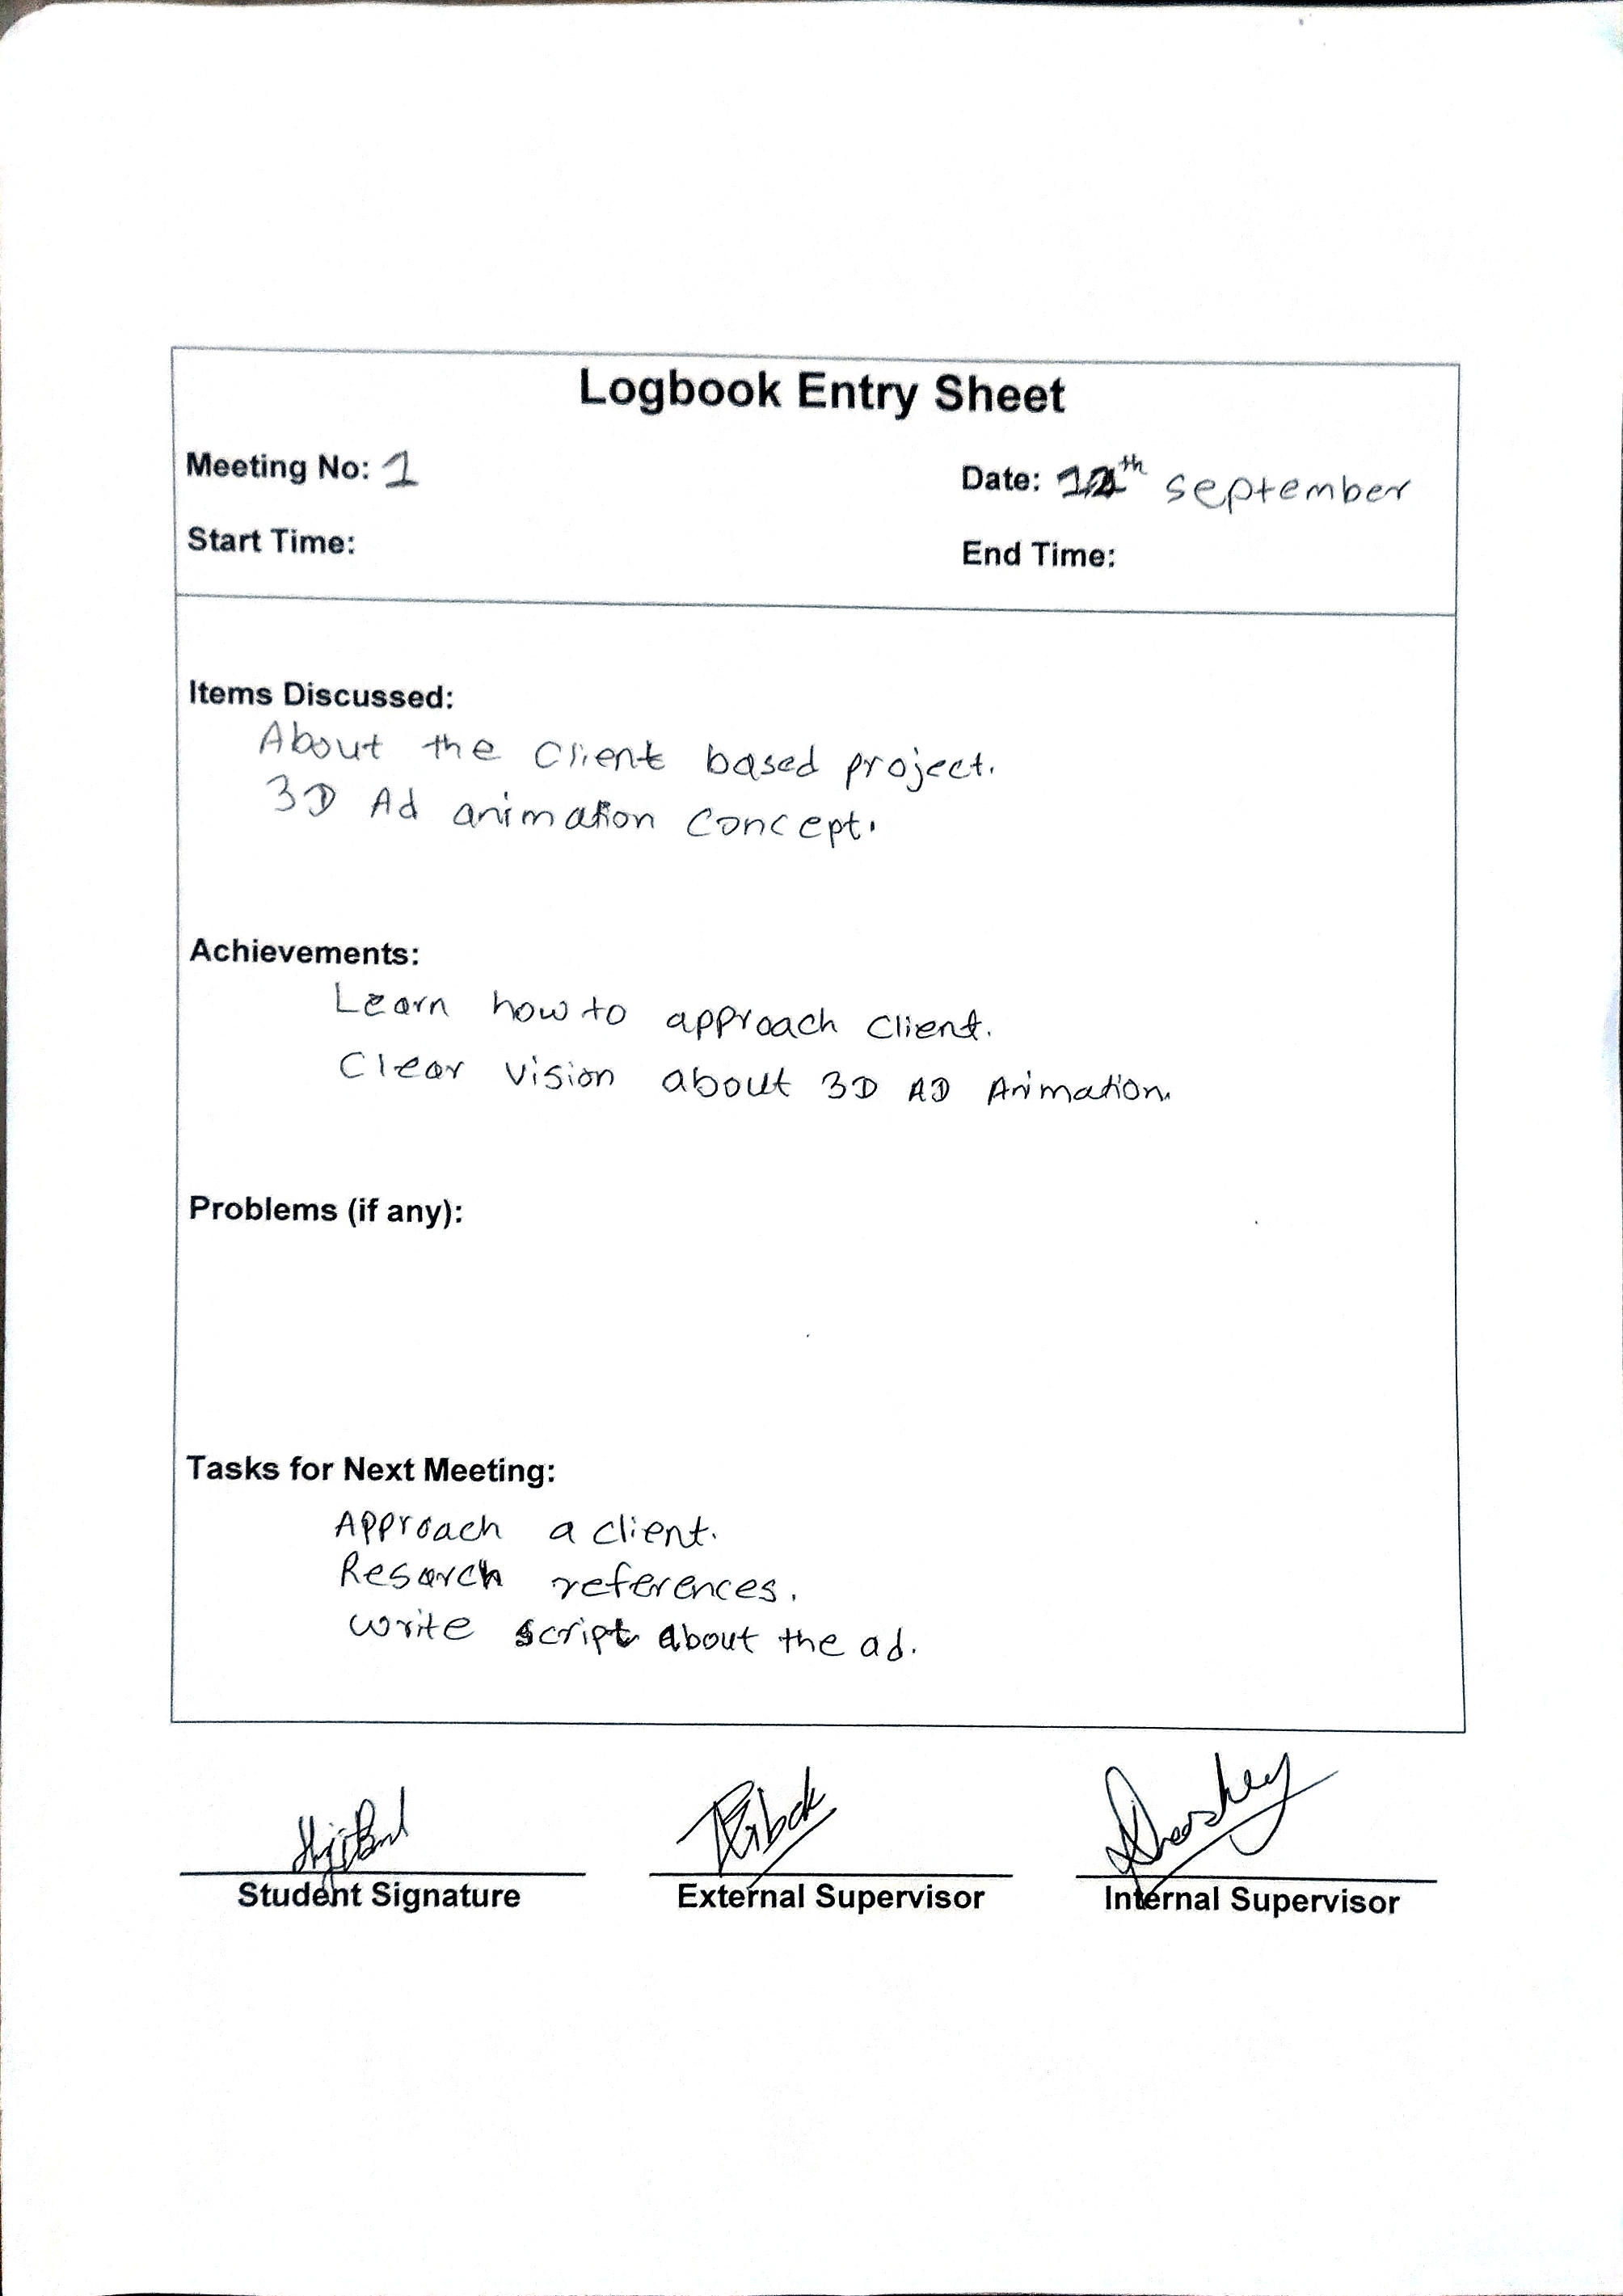 Logbook Entry Sheet
Meeting No: 1
Date: september
Start Time:
End Time:
Items Discussed:
About the client based project.
3D Ad animation concept.
Achievements:
Learn how to approach client.
Clear vision about 3D AD Animation.
Problems (if any):
Tasks for Next Meeting:
Approach a client.
Resarch references.
write script about the ad.
Student Signature
External Supervisor
Internal Supervisor